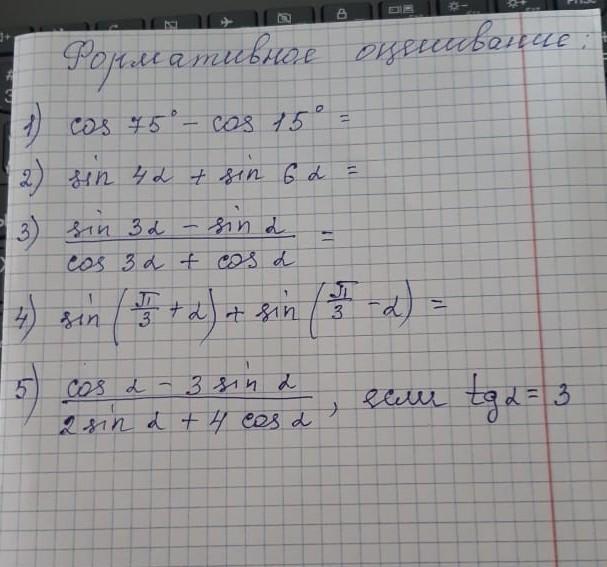 Формативное оценивание:
1) cos 75° - cos 15° =
2) sin 4α + sin 6α =
3) (sin 3α - sin α) / (cos 3α + cos α) =
4) sin (π/3 + α) + sin (π/3 - α) =
5) (cos α - 3 sin α) / (2 sin α + 4 cos α), если tg α = 3